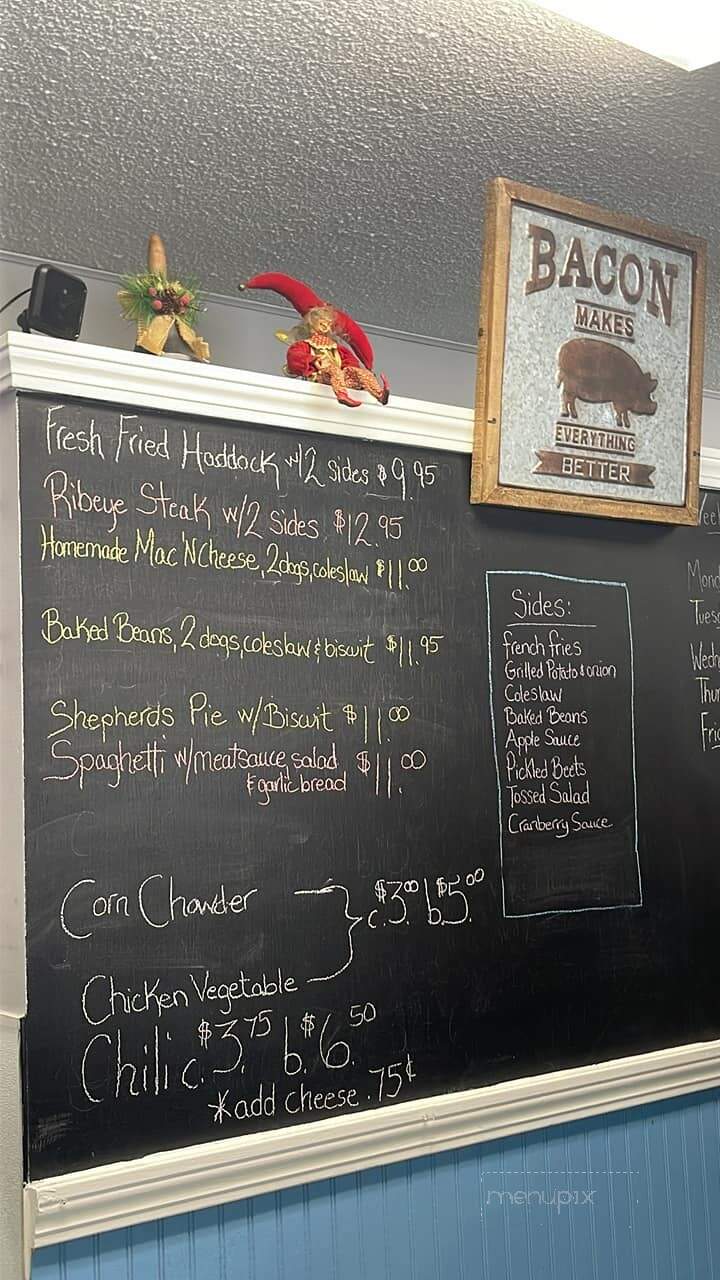 BACON
MAKES
EVERYTHING
BETTER
Fresh Fried Haddock w/2 Sides $9.95
Ribeye Steak w/2 Sides $12.95
Homemade Mac'N Cheese, 2 dogs, coleslaw $11.00
Baked Beans, 2 dogs, coleslaw & biscuit $11.95
Shepherds Pie w/Biscuit $11.00
Spaghetti w/meatsauce, salad $11.00
& garlic bread
Corn Chowder
c. $3.00 b. $5.00
Chicken Vegetable
Chili c. $3.75 b. $6.50
*add cheese .75¢
Sides:
french fries
Grilled Potato & onion
Coleslaw
Baked Beans
Apple Sauce
Pickled Beets
Tossed Salad
Cranberry Sauce
Mond
Tuesd
Wedn
Thur
Frid
menupix